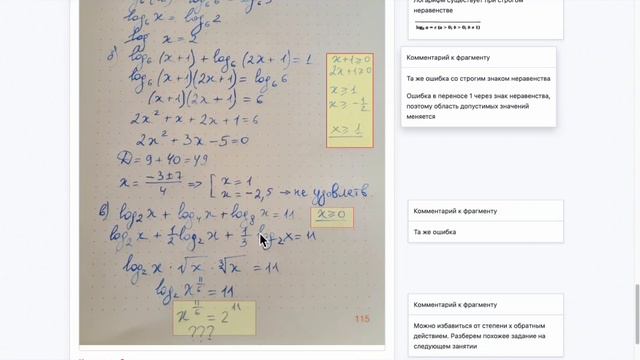 log₆ x = log₆ 2
log x = 2
б) log₆(x+1) + log₆(2x+1) = 1
log₆(x+1)(2x+1) = log₆6
(x+1)(2x+1) = 6
2x² + x + 2x + 1 = 6
2x² + 3x - 5 = 0
D = 9 + 40 = 49
x = (-3 ± 7)/4 => [ x = 1
x = -2,5 → не удовлетв.
x+1≥0
2x+1≥0
x ≥ 1
x ≥ -1/2
x ≥ 1
в) log₂x + log₄x + log₈x = 11
x ≥ 0
log₂x + 1/2 log₂x + 1/3 log₂x = 11
log₂ x · √x · ∛x = 11
log₂ x^(11/6) = 11
x^(11/6) = 2^11
???
115
неравенстве
Комментарий к фрагменту
Та же ошибка со строгим знаком неравенства
Ошибка в переносе 1 через знак неравенства,
поэтому область допустимых значений
меняется
Комментарий к фрагменту
Та же ошибка
Комментарий к фрагменту
Можно избавиться от степени х обратным
действием. Разберем похожее задание на
следующем занятии